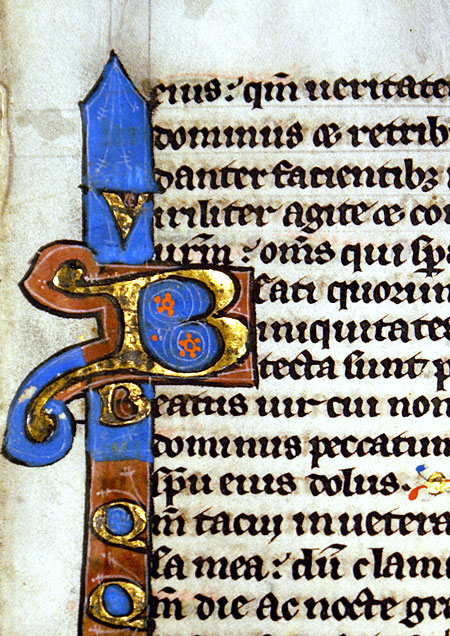 eius: qm̄ ueritate
dominus & retrib
danter facientibꝫ
Viriliter agite & co
urm̄: om̄s qui sp̄a
Beati quorum
iniquitates
tecta sunt p
Beatus uir cui non
dominus peccatum
sp̄u eius dolus.
Qm̄ tacui inuetera
sa mea: dū clama
Qm̄ die ac nocte gra